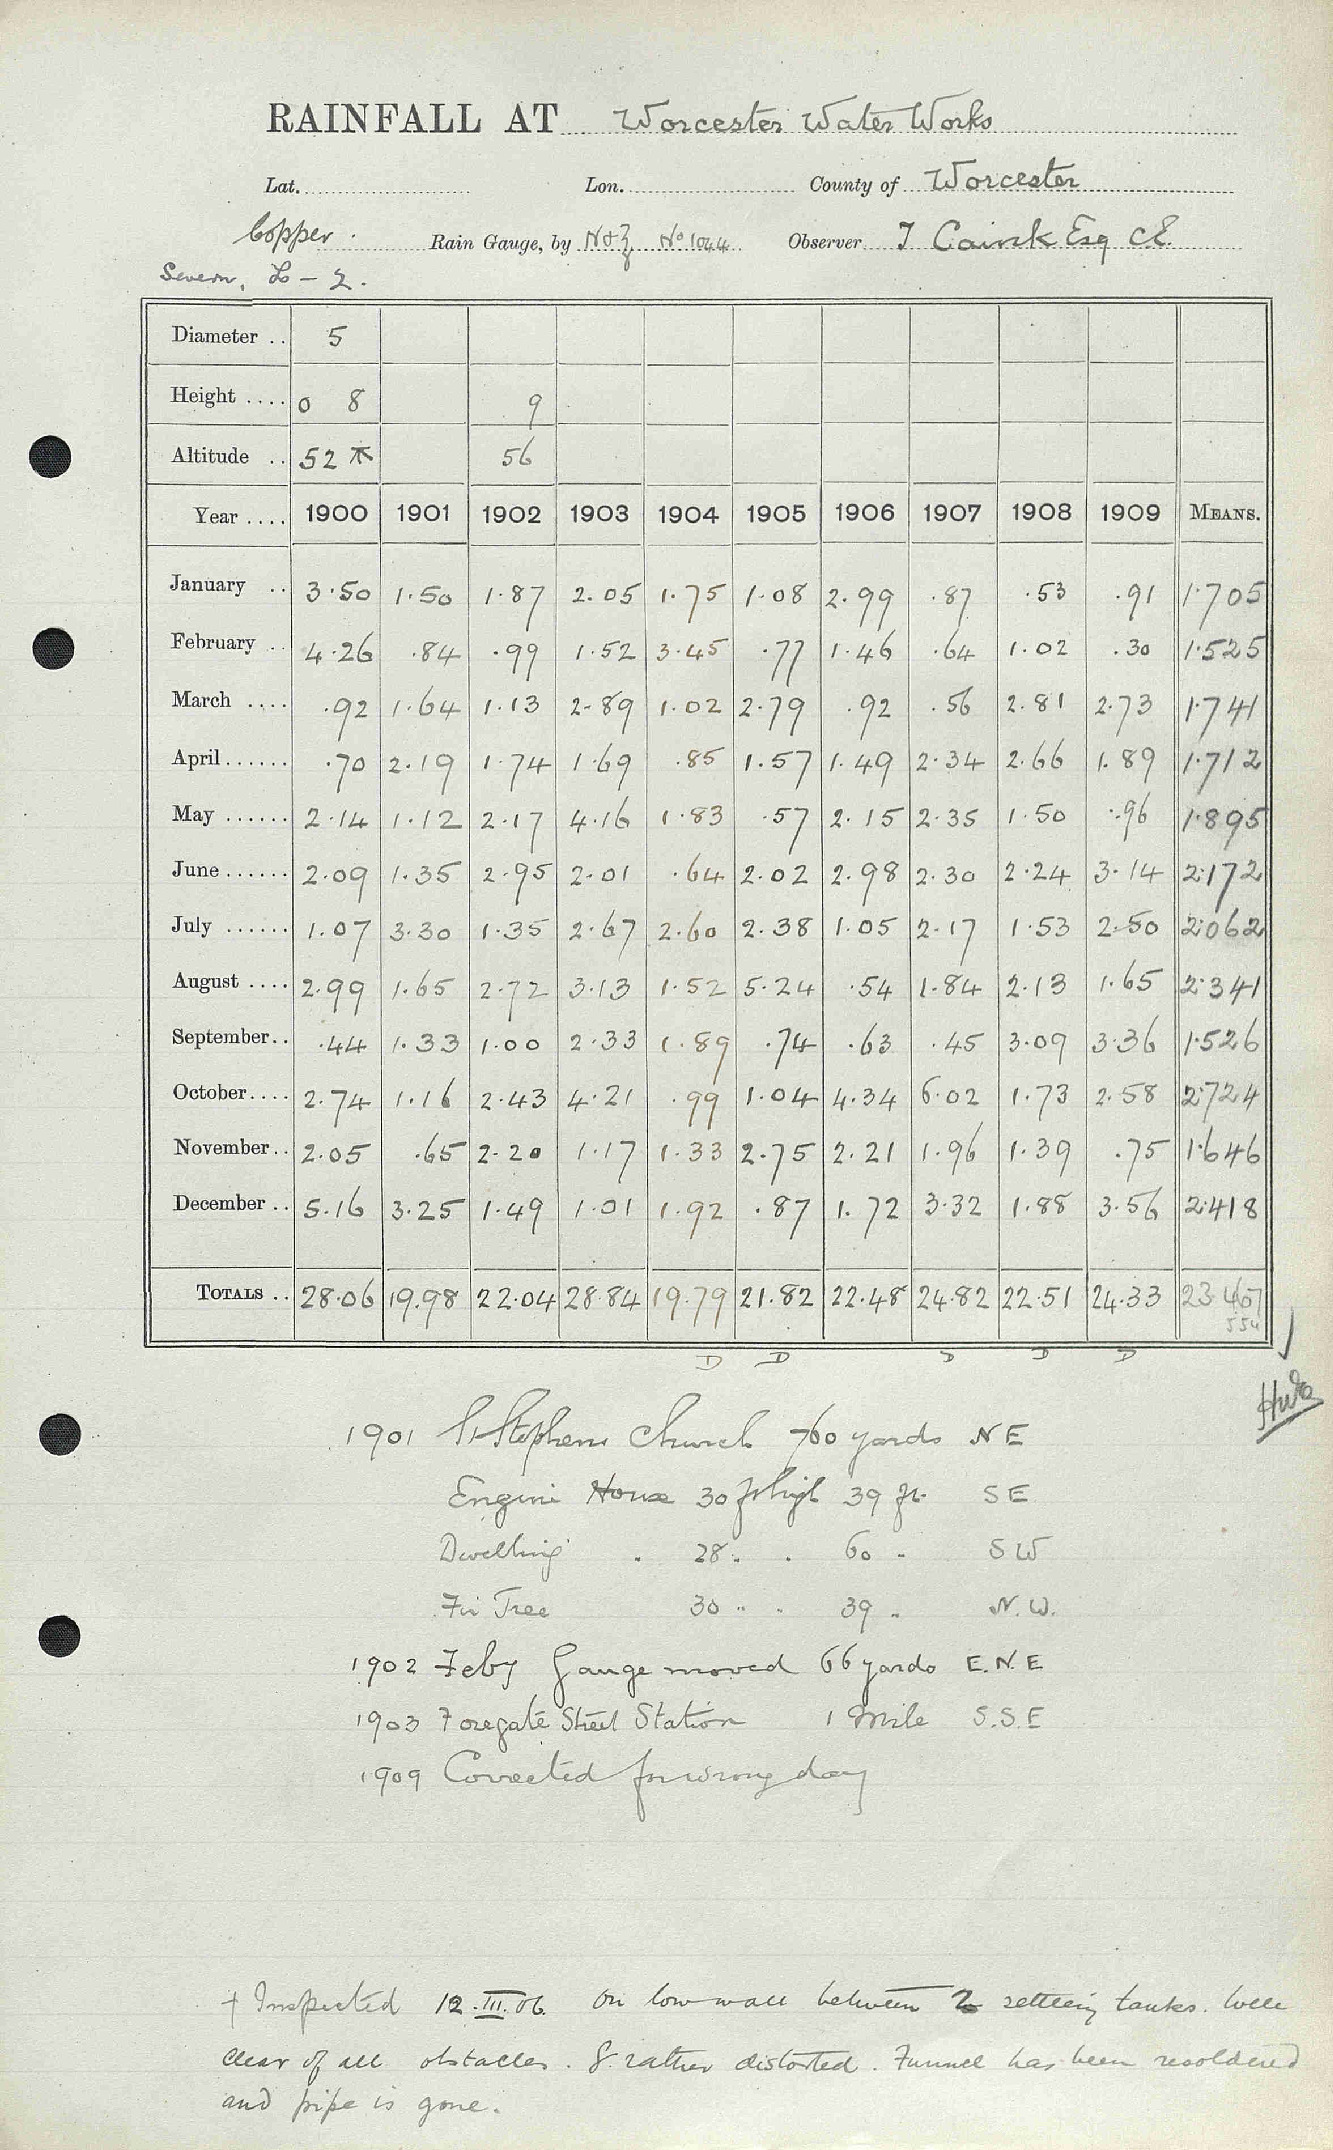 RAINFALL AT Worcester Water Works
Lat. Lon. County of Worcester
Copper. Rain Gauge, by N & Z No 1044 Observer T Cairck Esq C.E.
Severn, L - 2.
Diameter .. 5
Height .... 0 8 9
Altitude .. 52 56
Year .... 1900 1901 1902 1903 1904 1905 1906 1907 1908 1909 MEANS.
January .. 3.50 1.50 1.87 2.05 1.75 1.08 2.99 .87 .53 .91 1.705
February .. 4.26 .84 .99 1.52 3.45 .77 1.46 .64 1.02 .30 1.525
March .... .92 1.64 1.13 2.89 1.02 2.79 .92 .56 2.81 2.73 1.741
April ...... .70 2.19 1.74 1.69 .85 1.57 1.49 2.34 2.66 1.89 1.712
May ...... 2.14 1.12 2.17 4.16 1.83 .57 2.15 2.35 1.50 .96 1.895
June ...... 2.09 1.35 2.95 2.01 .64 2.02 2.98 2.30 2.24 3.14 2.172
July ...... 1.07 3.30 1.35 2.67 2.60 2.38 1.05 2.17 1.53 2.50 2.062
August .... 2.99 1.65 2.72 3.13 1.52 5.24 .54 1.84 2.13 1.65 2.341
September .. .44 1.33 1.00 2.33 1.89 .74 .63 .45 3.09 3.36 1.526
October .... 2.74 1.16 2.43 4.21 .99 1.04 4.34 6.02 1.73 2.58 2.724
November .. 2.05 .65 2.20 1.17 1.33 2.75 2.21 1.96 1.39 .75 1.646
December .. 5.16 3.25 1.49 1.01 1.92 .87 1.72 3.32 1.88 3.56 2.418
TOTALS .. 28.06 19.98 22.04 28.84 19.79 21.82 22.48 24.82 22.51 24.33 23.467
D D D D D
1901 St Stephens Church 760 yards NE
Engine House 30 ft high 39 ft. SE
Dwelling . 28 . . 60 . SW
Fir Tree 30 .. . 39 .. N.W.
1902 Feby Gauge moved 66 yards E.N.E
1903 Foregate Street Station 1 Mile S.S.E
1909 Corrected for wrong day
† Inspected 12.III.06. On low wall between 2 settling tanks. Well
clear of all obstacles. G. rather distorted. Funnel has been resoldered
and pipe is gone.